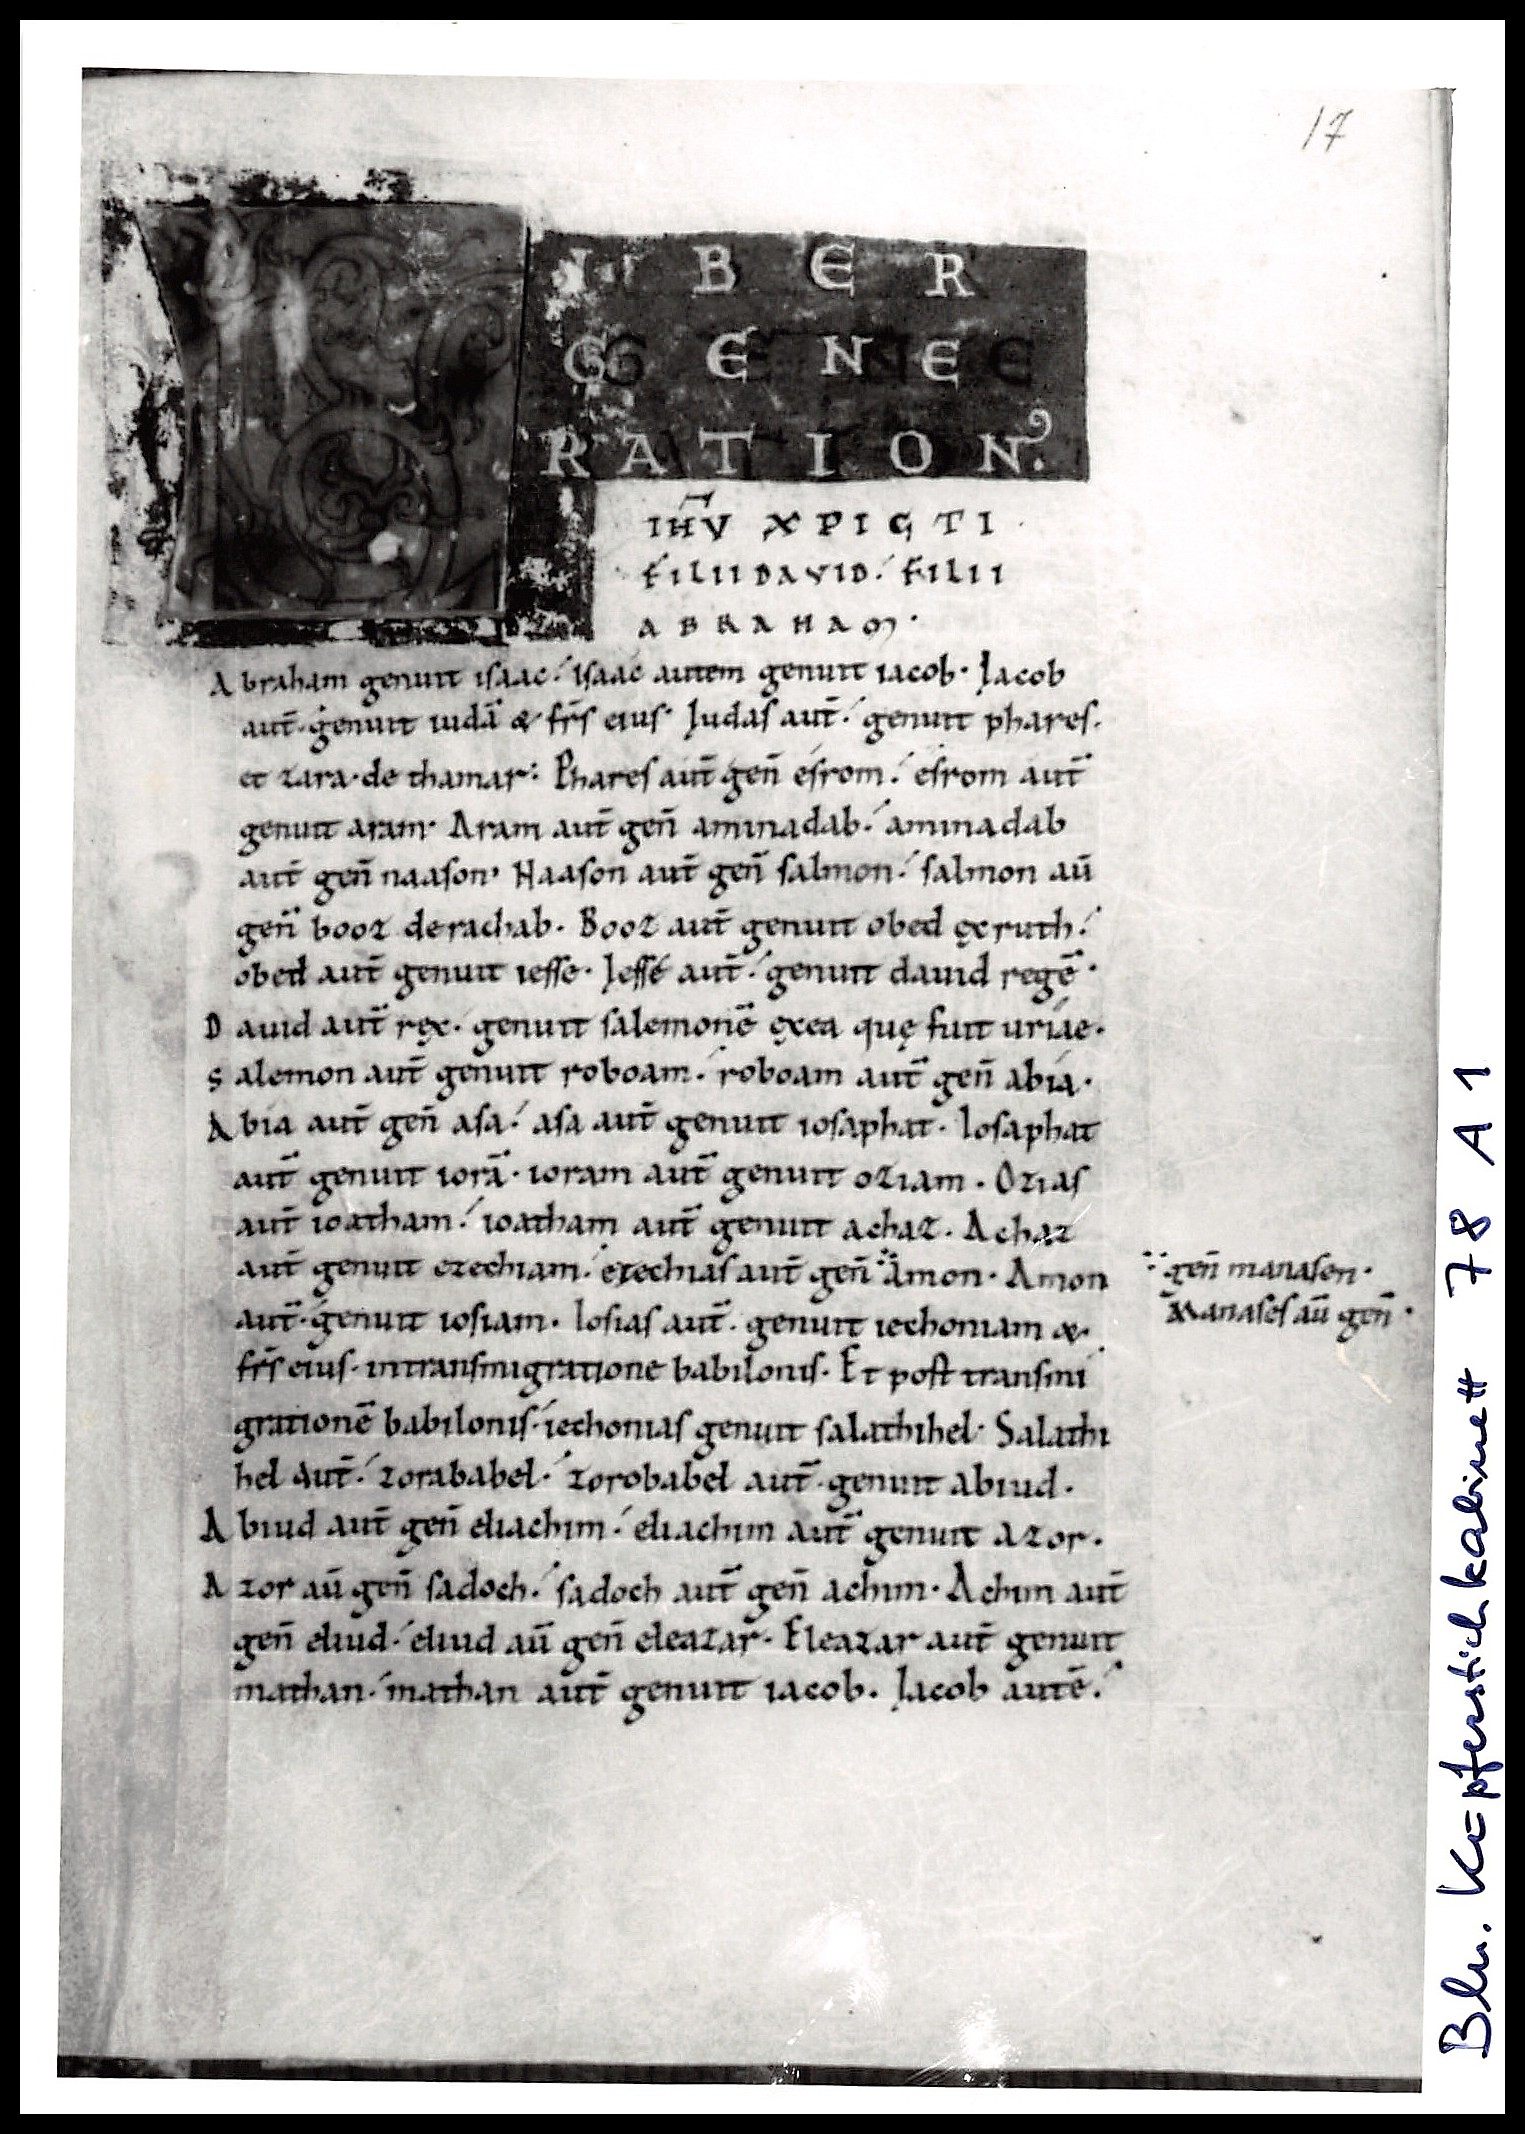 17
L I B E R
G E N E
R A T I O Nꝰ.
IH̅V XPIСTI
FILII DAVID. FILII
ABRAHAM.
Abraham genuit isaac. isaac autem genuit iacob. Jacob
aut̄. genuit iudā & fr̄s eius. Judas aut̄. genuit phares.
et zara. de thamar. Phares aut̄ gen̄ esrom. esrom aut̄
genuit aram. Aram aut̄ gen̄ aminadab. aminadab
aut̄ gen̄ naason. Naason aut̄ gen̄ salmon. salmon aū
gen̄ booz de rachab. Booz aut̄ genuit obed ęx ruth.
obed aut̄ genuit iesse. Jesse aut̄. genuit dauid regē.
Dauid aut̄ ręx. genuit salemonē ęx ea quę fuit uriae.
Salemon aut̄ genuit roboam. roboam aut̄ gen̄ abia.
Abia aut̄ gen̄ asa. asa aut̄ genuit iosaphat. Iosaphat
aut̄ genuit iorā. ioram aut̄ genuit oziam. Ozias
aut̄ ioatham. ioatham aut̄ genuit achaz. Achaz
aut̄ genuit ezechiam. ezechias aut̄ gen̄ amon. Amon
gen̄ manasen.
Manases aū gen̄.
aut̄. genuit iosiam. Iosias aut̄. genuit iechoniam &
fr̄s eius. in transmigratione babilonis. Et post transmi
grationē babilonis. iechonias genuit salathihel. Salathi
hel aut̄. zorababel. zorobabel aut̄. genuit abiud.
Abiud aut̄ gen̄ eliachim. eliachim aut̄ genuit azor.
Azor aū gen̄ sadoch. sadoch aut̄ gen̄ achim. Achim aut̄
gen̄ eliud. eliud aū gen̄ eleazar. Eleazar aut̄ genuit
mathan. mathan aut̄ genuit iacob. Jacob autē.
Bln. Kupferstichkabinett 78 A 1